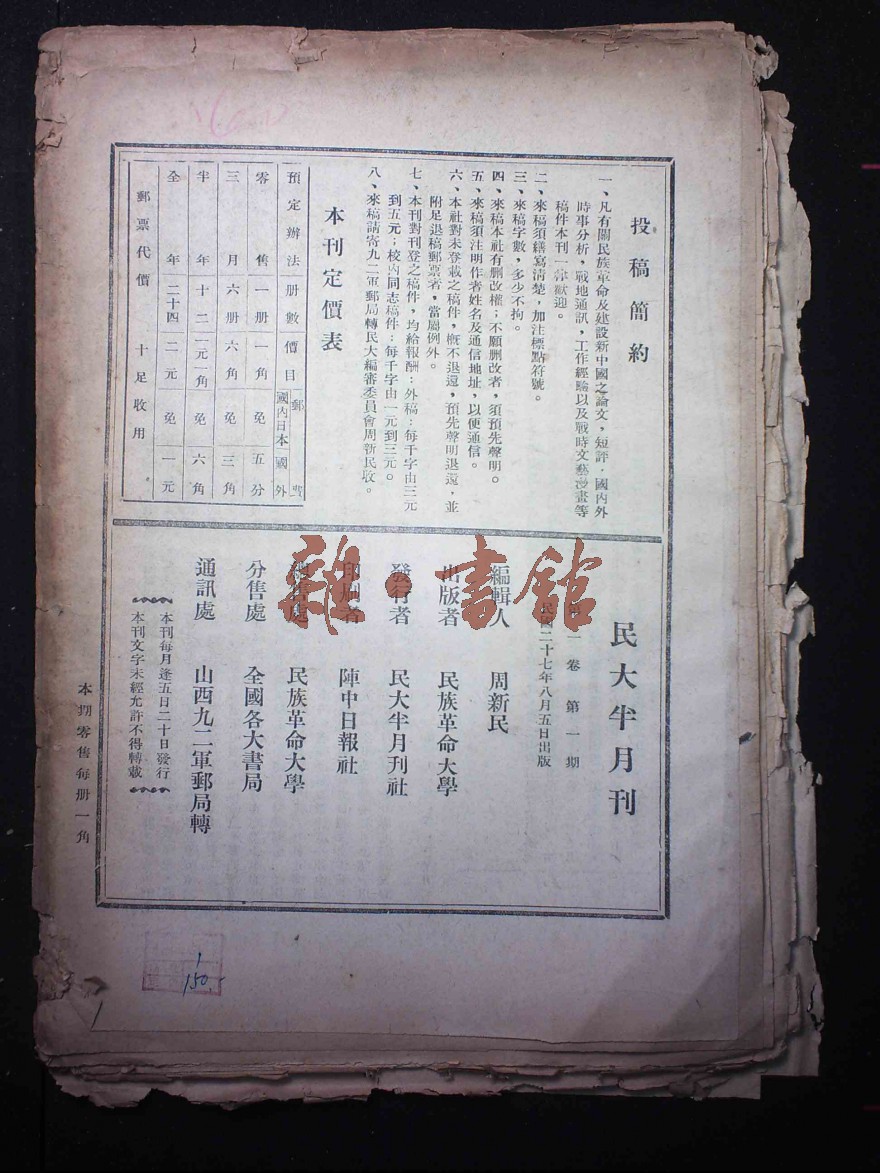 投稿簡約
一、凡有關民族革命及建設新中國之論文，短評，國內外
時事分析，戰地通訊，工作經驗以及戰時文藝漫畫等
稿件本刊一律歡迎。
二、來稿須繕寫清楚，加注標點符號。
三、來稿字數，多少不拘。
四、來稿本社有删改權；不願删改者，須預先聲明。
五、來稿須注明作者姓名及通信地址，以便通信。
六、本社對未登載之稿件，概不退還，預先聲明退還，並
附足退稿郵票者，當屬例外。
七、本刊對刊登之稿件，均給報酬：外稿：每千字由三元
到五元；校內同志稿件：每千字由一元到三元。
八、來稿請寄九二軍郵局轉民大編審委員會周新民收。
本刊定價表
預定辦法 册數 價目 郵費 國內日本 國外
零售 一册 一角 免 五分
三月 六册 六角 免 三角
半年 十二 一元一角 免 六角
全年 二十四 二元 免 一元
郵票代價 十足收用
民大半月刊
卷 第一期
民國二十七年八月五日出版
編輯人 周新民
出版者 民族革命大學
發行者 民大半月刊社
印刷者 陣中日報社
售處 民族革命大學
分售處 全國各大書局
通訊處 山西九二軍郵局轉
本刊每月逢五日二十日發行
本刊文字未經允許不得轉載
本期零售每册一角
雜·書館
1
150.-